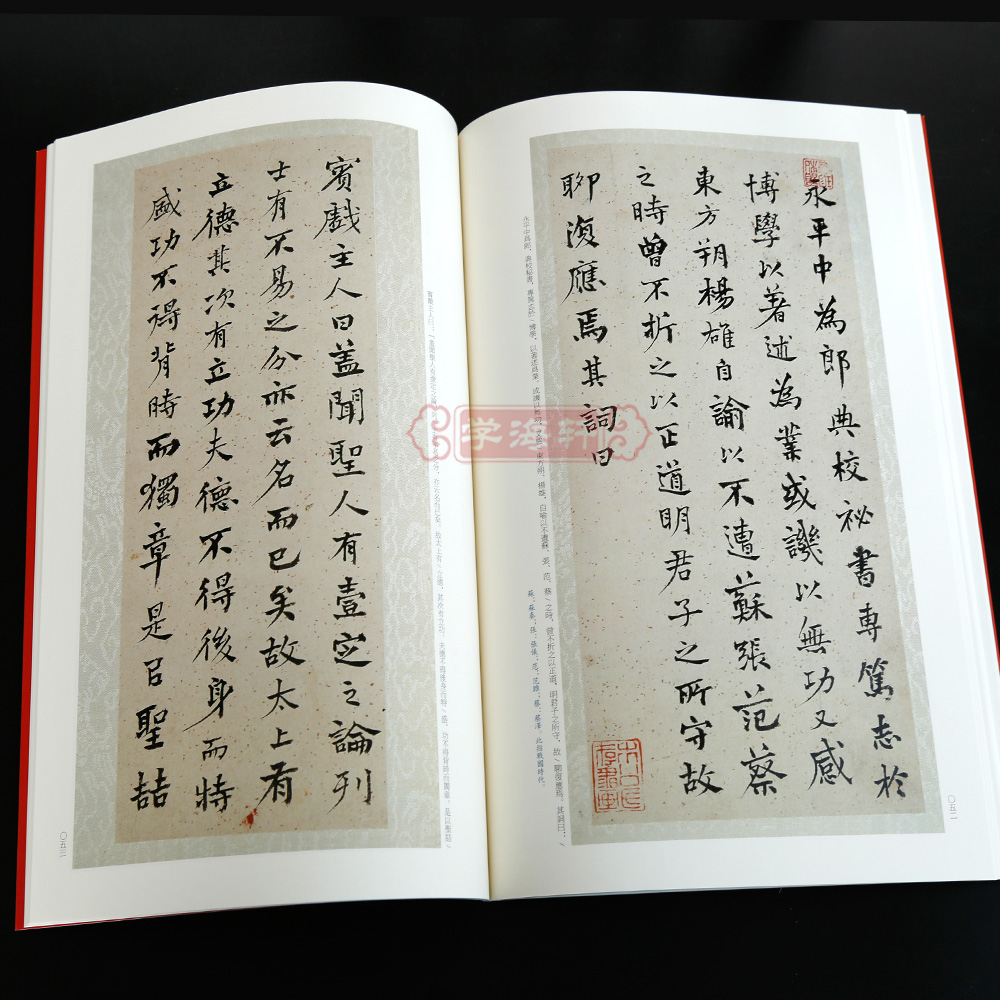 永平中為郎典校祕書專篤志於
博學以著述為業或譏以無功又感
東方朔楊雄自諭以不遭蘇張范蔡
之時曾不折之以正道明君子之所守故
聊復應焉其詞曰
蘇：蘇秦；張：張儀；范：范雎；蔡：蔡澤。此指戰國時代。
〇五二
賓戲主人曰盖聞聖人有壹定之論列
士有不易之分亦云名而已矣故太上有
立德其次有立功夫德不得後身而特
盛功不得背時而獨章是㠯聖喆
〇五三
学海轩